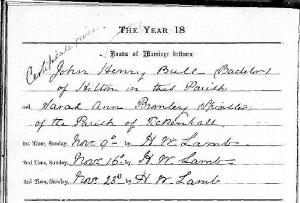 THE YEAR 18
Certificate given
Banns of Marriage between
John Henry Bull Bachelor
of Hilton in this Parish
and Sarah Ann Bromley Spinster
of the Parish of
1st Time, Sunday, Nov. 9th by H W Lamb
2nd Time, Sunday, Nov. 16th by H. W. Lamb
3rd Time, Sunday, Nov. 23d by H W Lamb